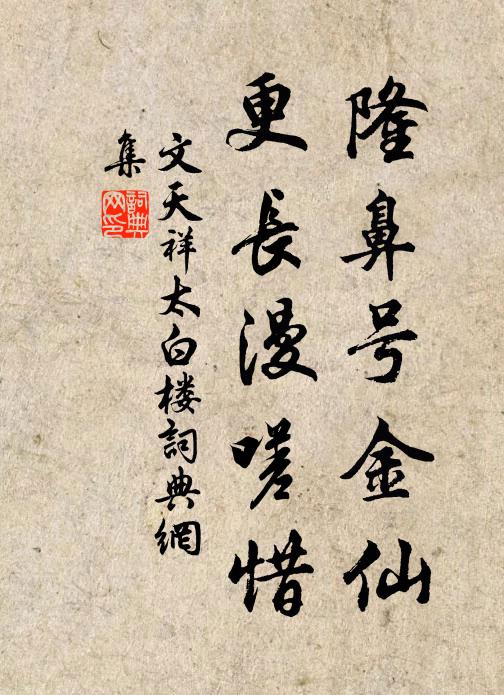 隆鼻号金仙
更長漫嗟惜
文天祥太白楼詞典網
集
詞典
网印